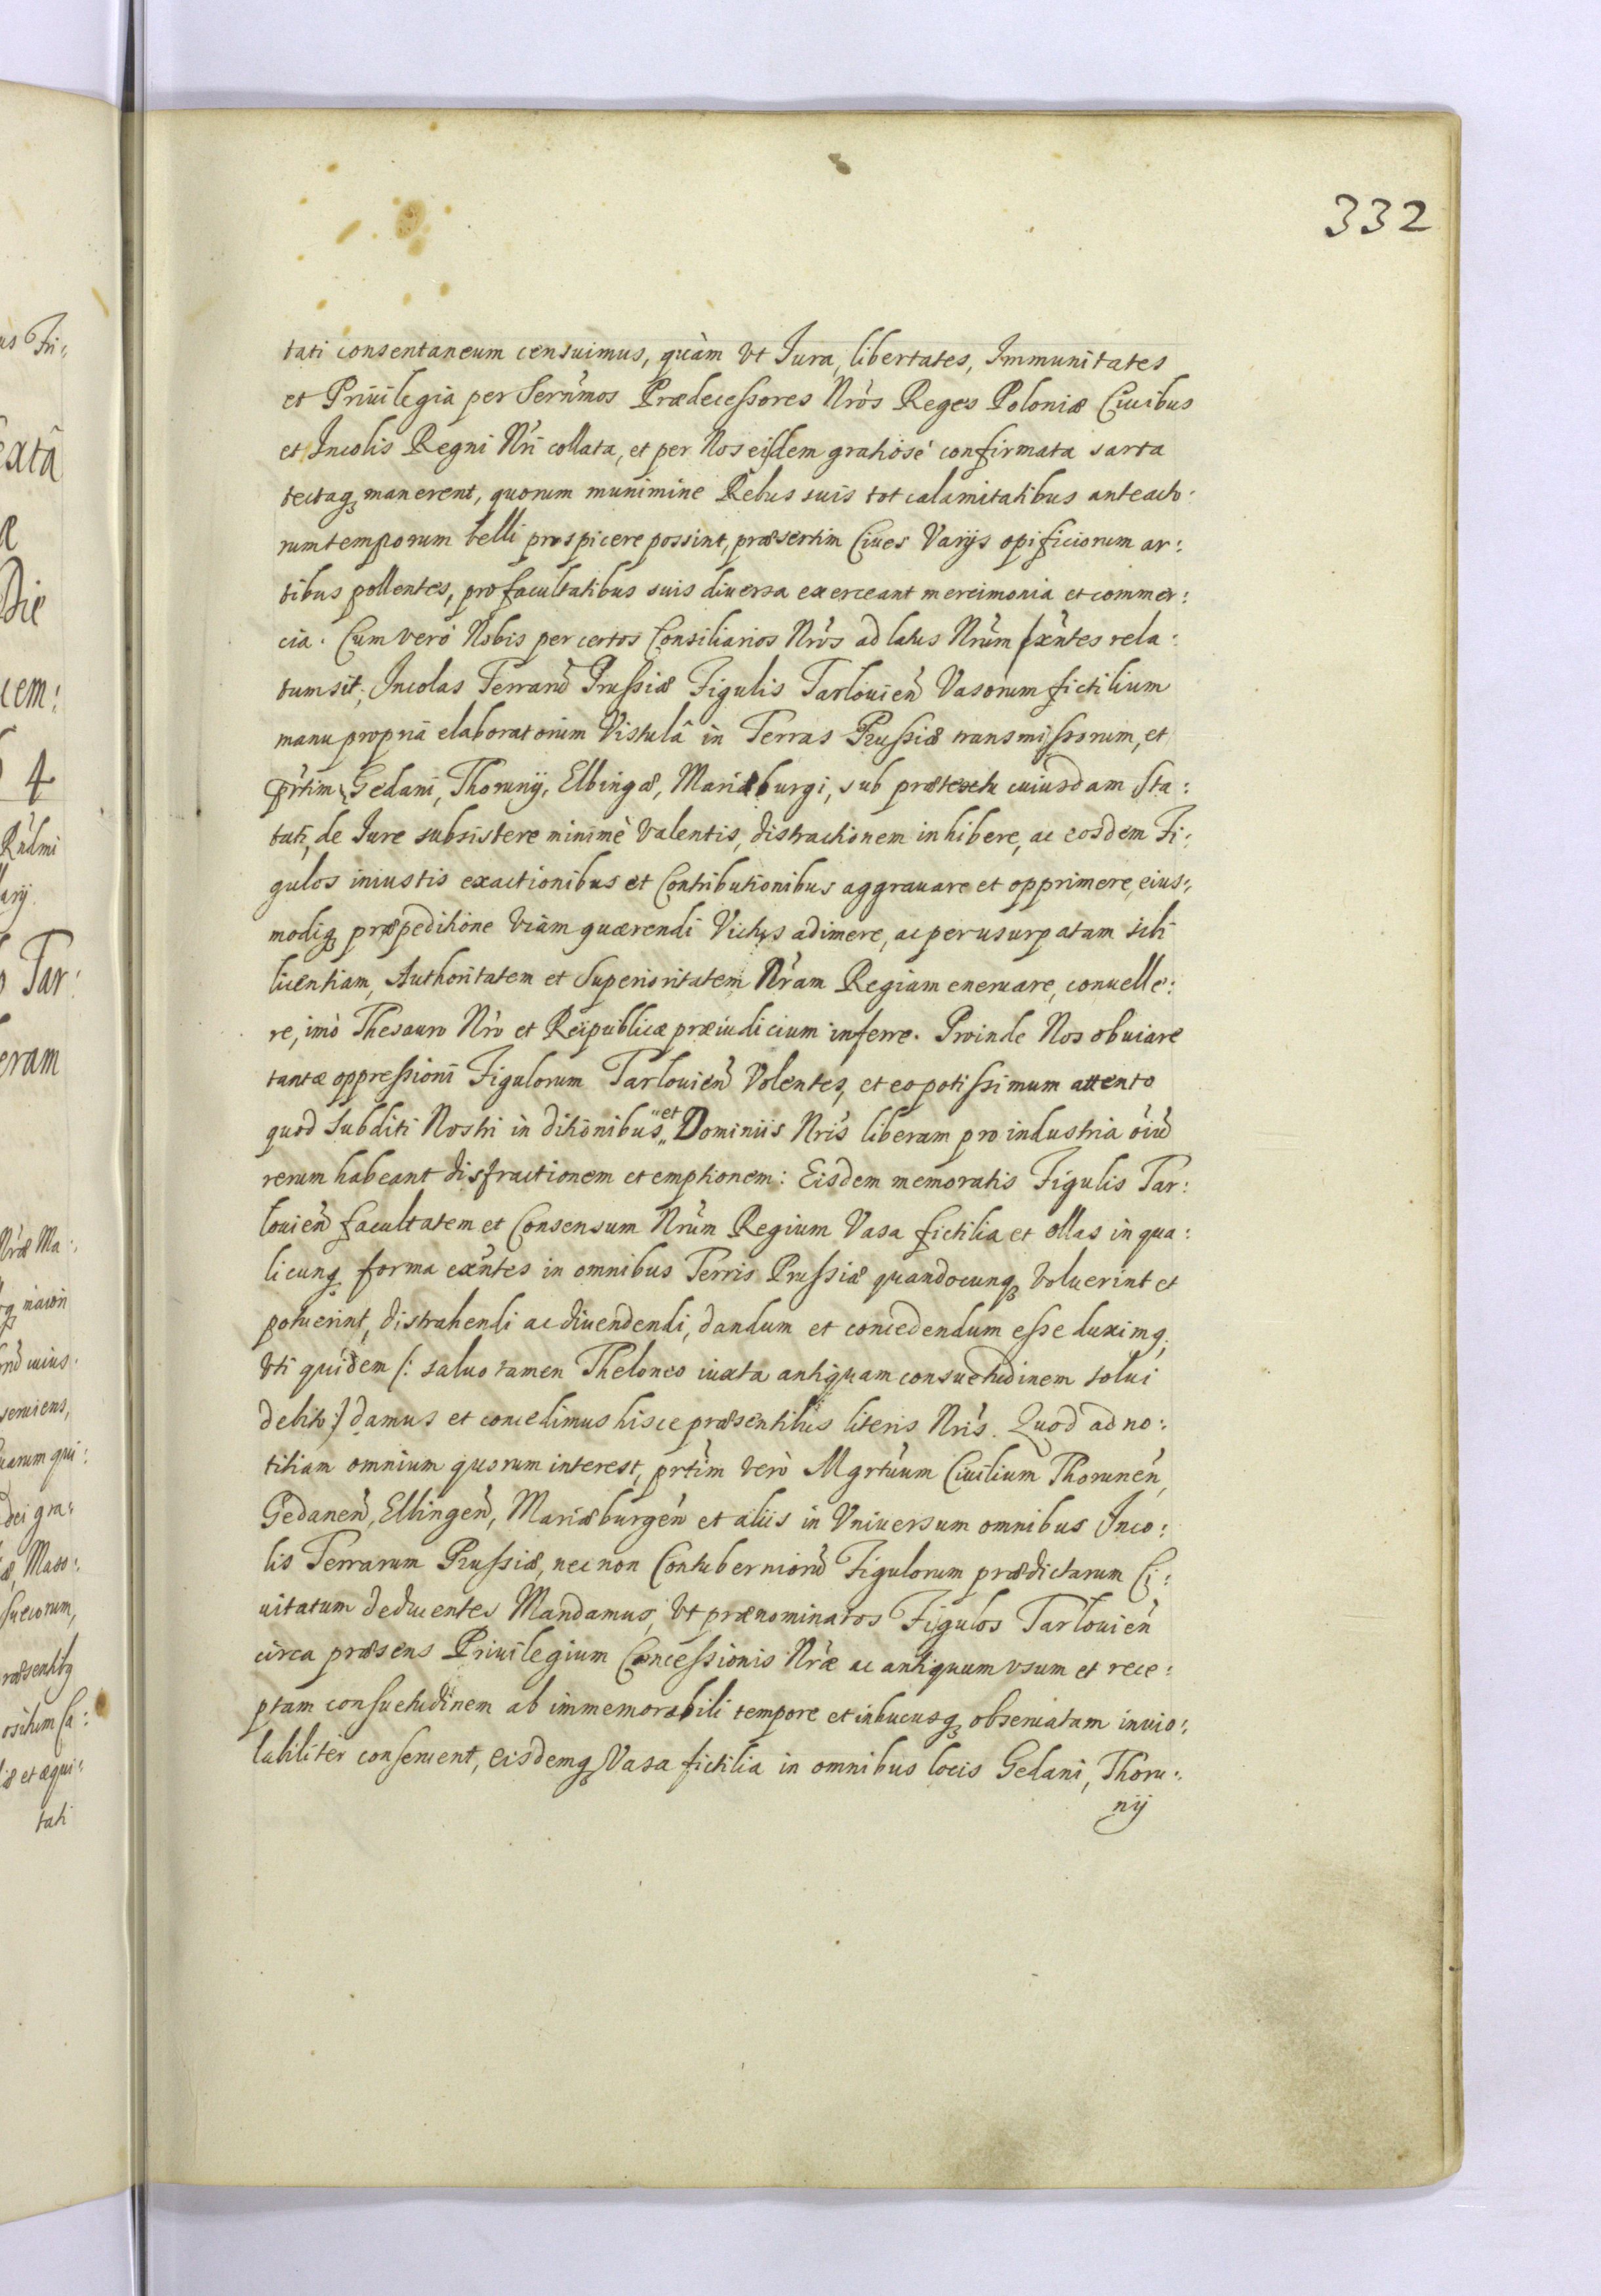 332
tati consentaneum censuimus, quàm Vt Iura, libertates, Immunitates
et Priuilegia per Sernm̃os Prædecessores Nrõs Reges Poloniæ Ciuibus
et Incolis Regni Nrĩ collata, et per Nos eisdem gratiosè confirmata sarta
tectaqꝫ manerent, quorum munimine Rebus suis tot calamitatibus anteacto:
rum temporum belli prospicere possint, præsertim Ciues Varijs opificiorum ar:
tibus pollentes, pro facultatibus suis diuersa exerceant mercimonia et commer:
cia. Cum verò Nobis per certos Consiliarios Nrõs ad latus Nrũm exñtes rela:
tum sit, Incolas Terrarũ Prussiæ Figulis Tarlouień Vasorum fictilium
manu propriâ elaboratorum Vistulâ in Terras Prussiæ transmissorum, et
prt̃im Gedani, Thorunij, Elbingæ, Mariæburgi, sub prætextu cuiusdam Sta:
tuti, de Iure subsistere minimè Valentis, distractionem inhibere, ac eosdem Fi:
gulos iniustis exactionibus et Contributionibus aggrauare et opprimere, eius:
modiqꝫ præpeditione viam quærendi Victus adimere, ac per usurpatam sibi
licentiam, Authoritatem et Superioritatem Nrãm Regiam eneruare, conuelle:
re, imò Thesauro Nrõ et Reipublicæ præiudicium inferre. Proinde Nos obuiare
tantæ oppressioni Figulorum Tarlouień Volentes, et eo potissimum attento
quod Subditi Nostri in ditionibus et Dominiis Nrĩs liberam pro industria oĩũ
rerum habeant disfractionem et emptionem: Eisdem memoratis Figulis Tar:
louień facultatem et Consensum Nrũm Regium Vasa fictilia et ollas in qua:
licunqꝫ forma exñtes in omnibus Terris Prussiæ quandocunqꝫ Voluerint et
potuerint, distrahendi ac diuendendi, dandum et concedendum esse duximqꝫ,
Vti quidem /: saluo tamen Theloneo iuxta antiquam consuetudinem solui
debito :/ damus et concedimus hisce præsentibus literis Nrĩs. Quod ad no:
titiam omnium quorum interest, prt̃im verò Mgrt̃uum Ciuilium Thoruneń,
Gedaneń, Elbingeń, Mariæburgeń et aliis in Vniuersum omnibus Inco:
lis Terrarum Prussiæ, necnon Contuberniorũ Figulorum prædictarum Ci:
uitatum deducentes Mandamus, Vt prænominatos Figulos Tarlouień
circa præsens Priuilegium Concessionis Nrǽ ac antiquum vsum et rece:
ptam consuetudinem ab immemorabili tempore et inhucusqꝫ obseruatam inuio:
labiliter conseruent, eisdemqꝫ Vasa fictilia in omnibus locis Gedani, Thoru:
nij